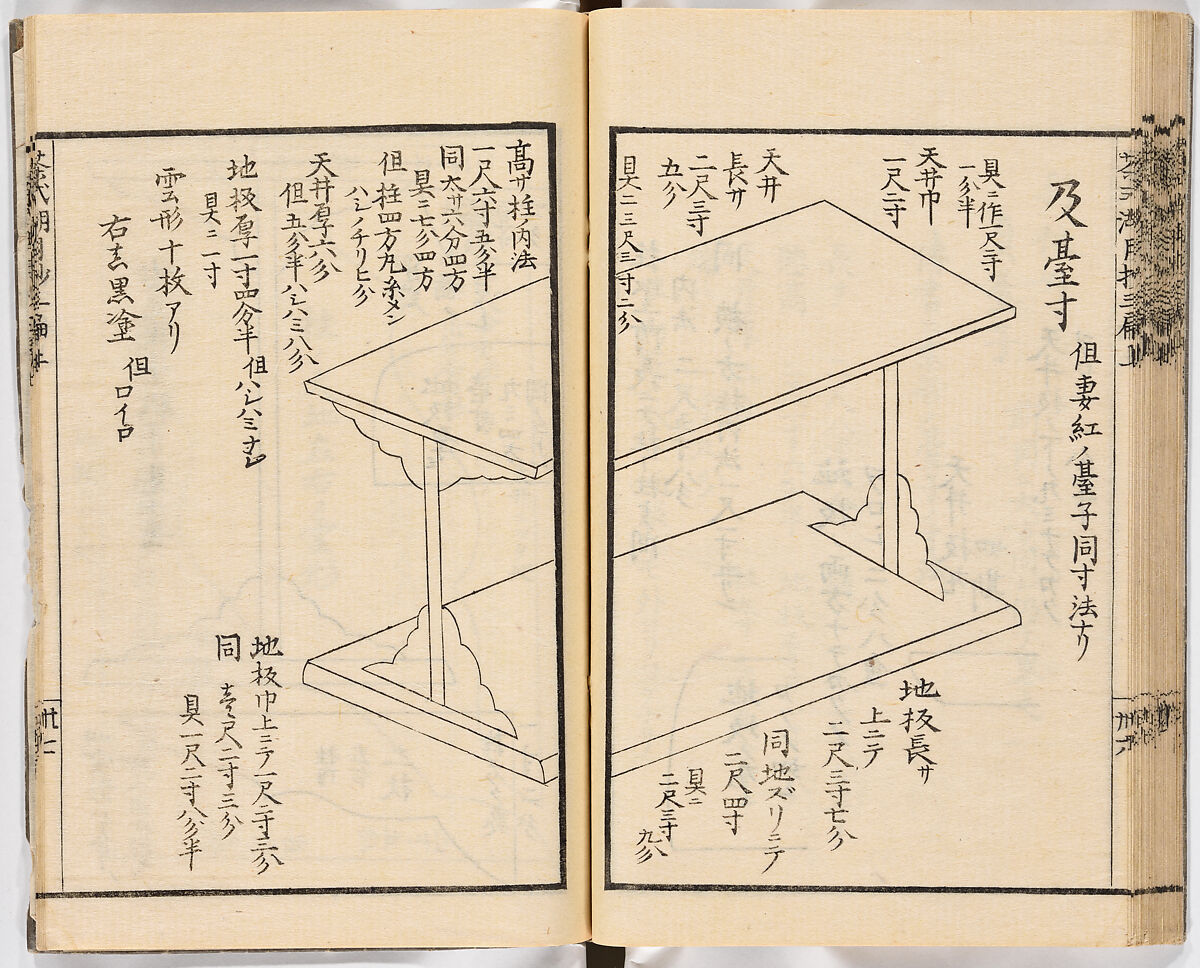 及臺寸
但妻紅ノ臺子同寸法ナリ
一分半
天井巾
一尺二寸
天井
長サ
二尺三寸
五分
二尺三寸二分
地板長サ
上ニテ
二尺三寸七分
同地ズリニテ
二尺四寸
二尺三寸
九分
高サ柱ノ内法
一尺六寸五分半
同太サ六分四方
七分四方
但柱四方丸糸メン
ハシノチリヒ分
天井厚六分
但五分半ハシハミ八分
地板厚一寸四分半
但ハシハミ
二寸
雲形十枚アリ
右真黒塗
但ロイロ
地板巾上ニテ一尺二寸三分
同
壱尺二寸三分
一尺二寸八分半